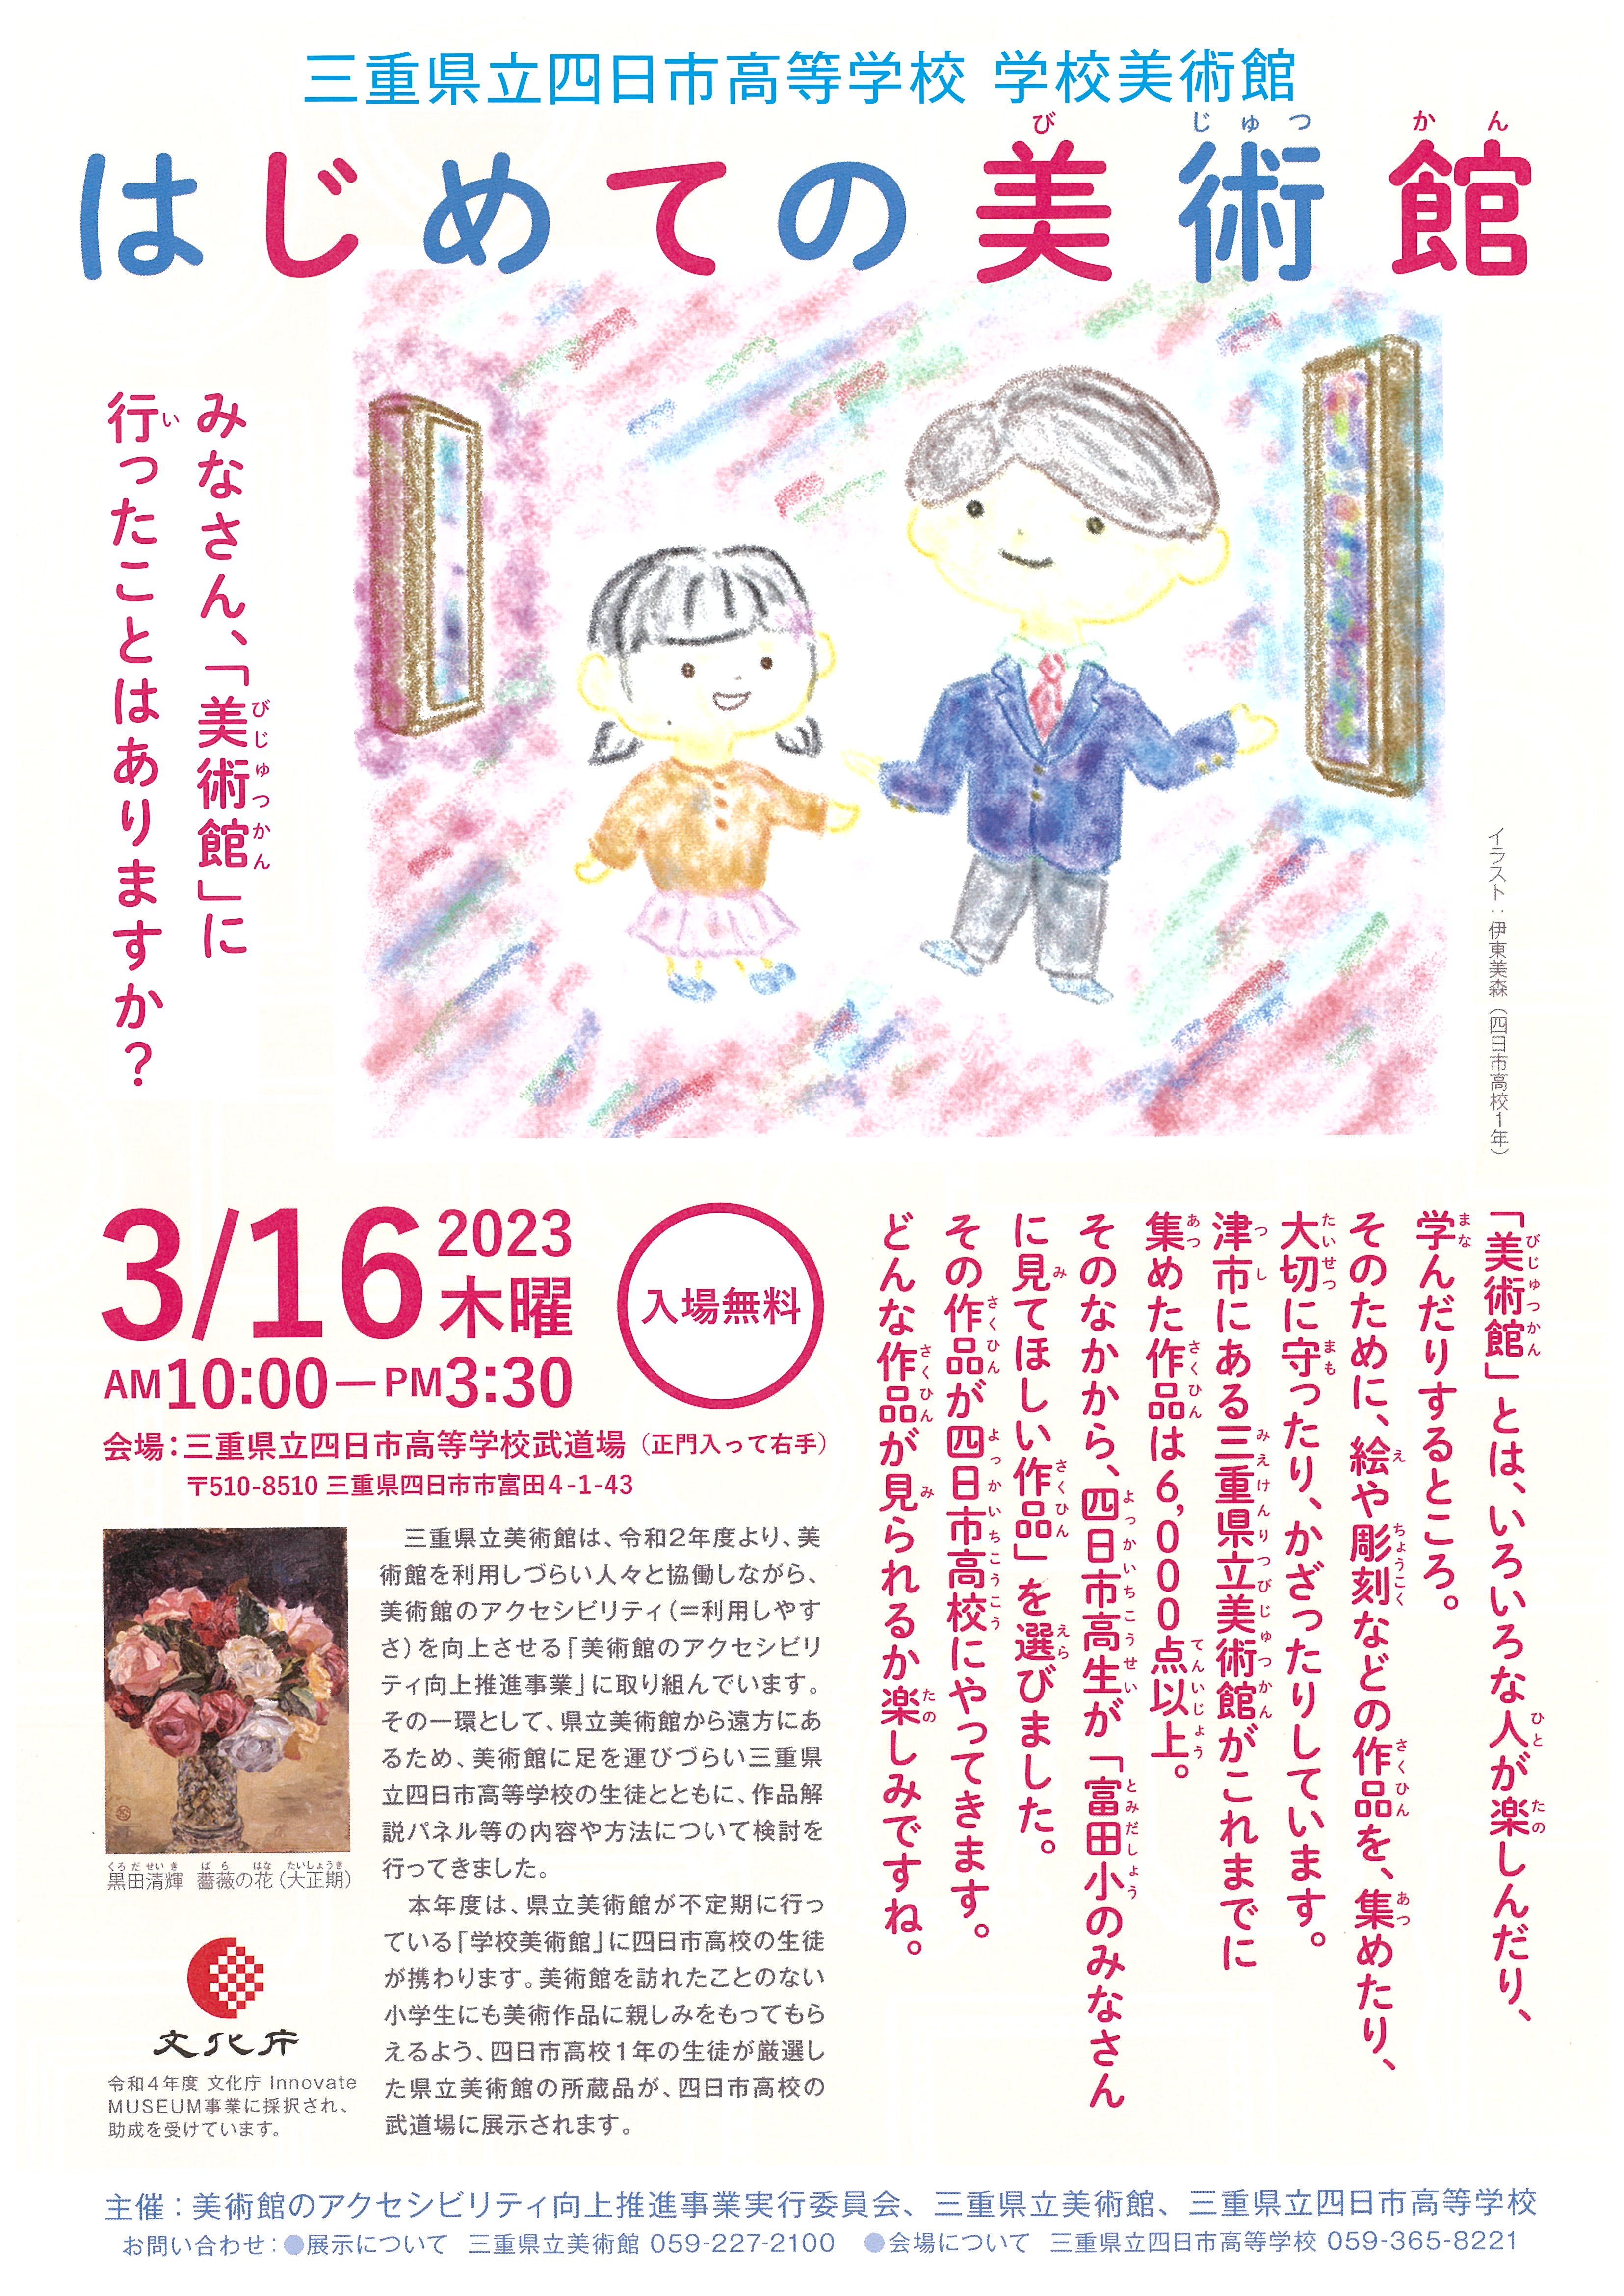 三重県立四日市高等学校 学校美術館
はじめての美術館
び じゅつ かん
みなさん、「美術館」に
びじゅつかん
行ったことはありますか?
い
イラスト：伊東美森（四日市高校1年）
3/16 2023 木曜
AM10:00—PM3:30
入場無料
会場：三重県立四日市高等学校武道場（正門入って右手）
〒510-8510 三重県四日市市富田4-1-43
「美術館」とは、いろいろな人が楽しんだり、
びじゅつかん ひと たの
学んだりするところ。
まな
そのために、絵や彫刻などの作品を、集めたり、
え ちょうこく さくひん あつ
大切に守ったり、かざったりしています。
たいせつ まも
津市にある三重県立美術館がこれまでに
つし みえけんりつびじゅつかん
集めた作品は6,000点以上。
あつ さくひん てんいじょう
そのなかから、四日市高生が「富田小のみなさん
よっかいちこうせい とみだしょう
に見てほしい作品」を選びました。
み さくひん えら
その作品が四日市高校にやってきます。
さくひん よっかいちこうこう
どんな作品が見られるか楽しみですね。
さくひん み たの
黒田清輝 薔薇の花（大正期）
くろだせいき ばら はな たいしょうき
三重県立美術館は、令和2年度より、美
術館を利用しづらい人々と協働しながら、
美術館のアクセシビリティ（＝利用しやす
さ）を向上させる「美術館のアクセシビリ
ティ向上推進事業」に取り組んでいます。
その一環として、県立美術館から遠方にあ
るため、美術館に足を運びづらい三重県
立四日市高等学校の生徒とともに、作品解
説パネル等の内容や方法について検討を
行ってきました。
本年度は、県立美術館が不定期に行っ
ている「学校美術館」に四日市高校の生徒
が携わります。美術館を訪れたことのない
小学生にも美術作品に親しみをもってもら
えるよう、四日市高校1年の生徒が厳選し
た県立美術館の所蔵品が、四日市高校の
武道場に展示されます。
文化庁
令和4年度 文化庁 Innovate
MUSEUM事業に採択され、
助成を受けています。
主催：美術館のアクセシビリティ向上推進事業実行委員会、三重県立美術館、三重県立四日市高等学校
お問い合わせ：●展示について 三重県立美術館 059-227-2100 ●会場について 三重県立四日市高等学校 059-365-8221